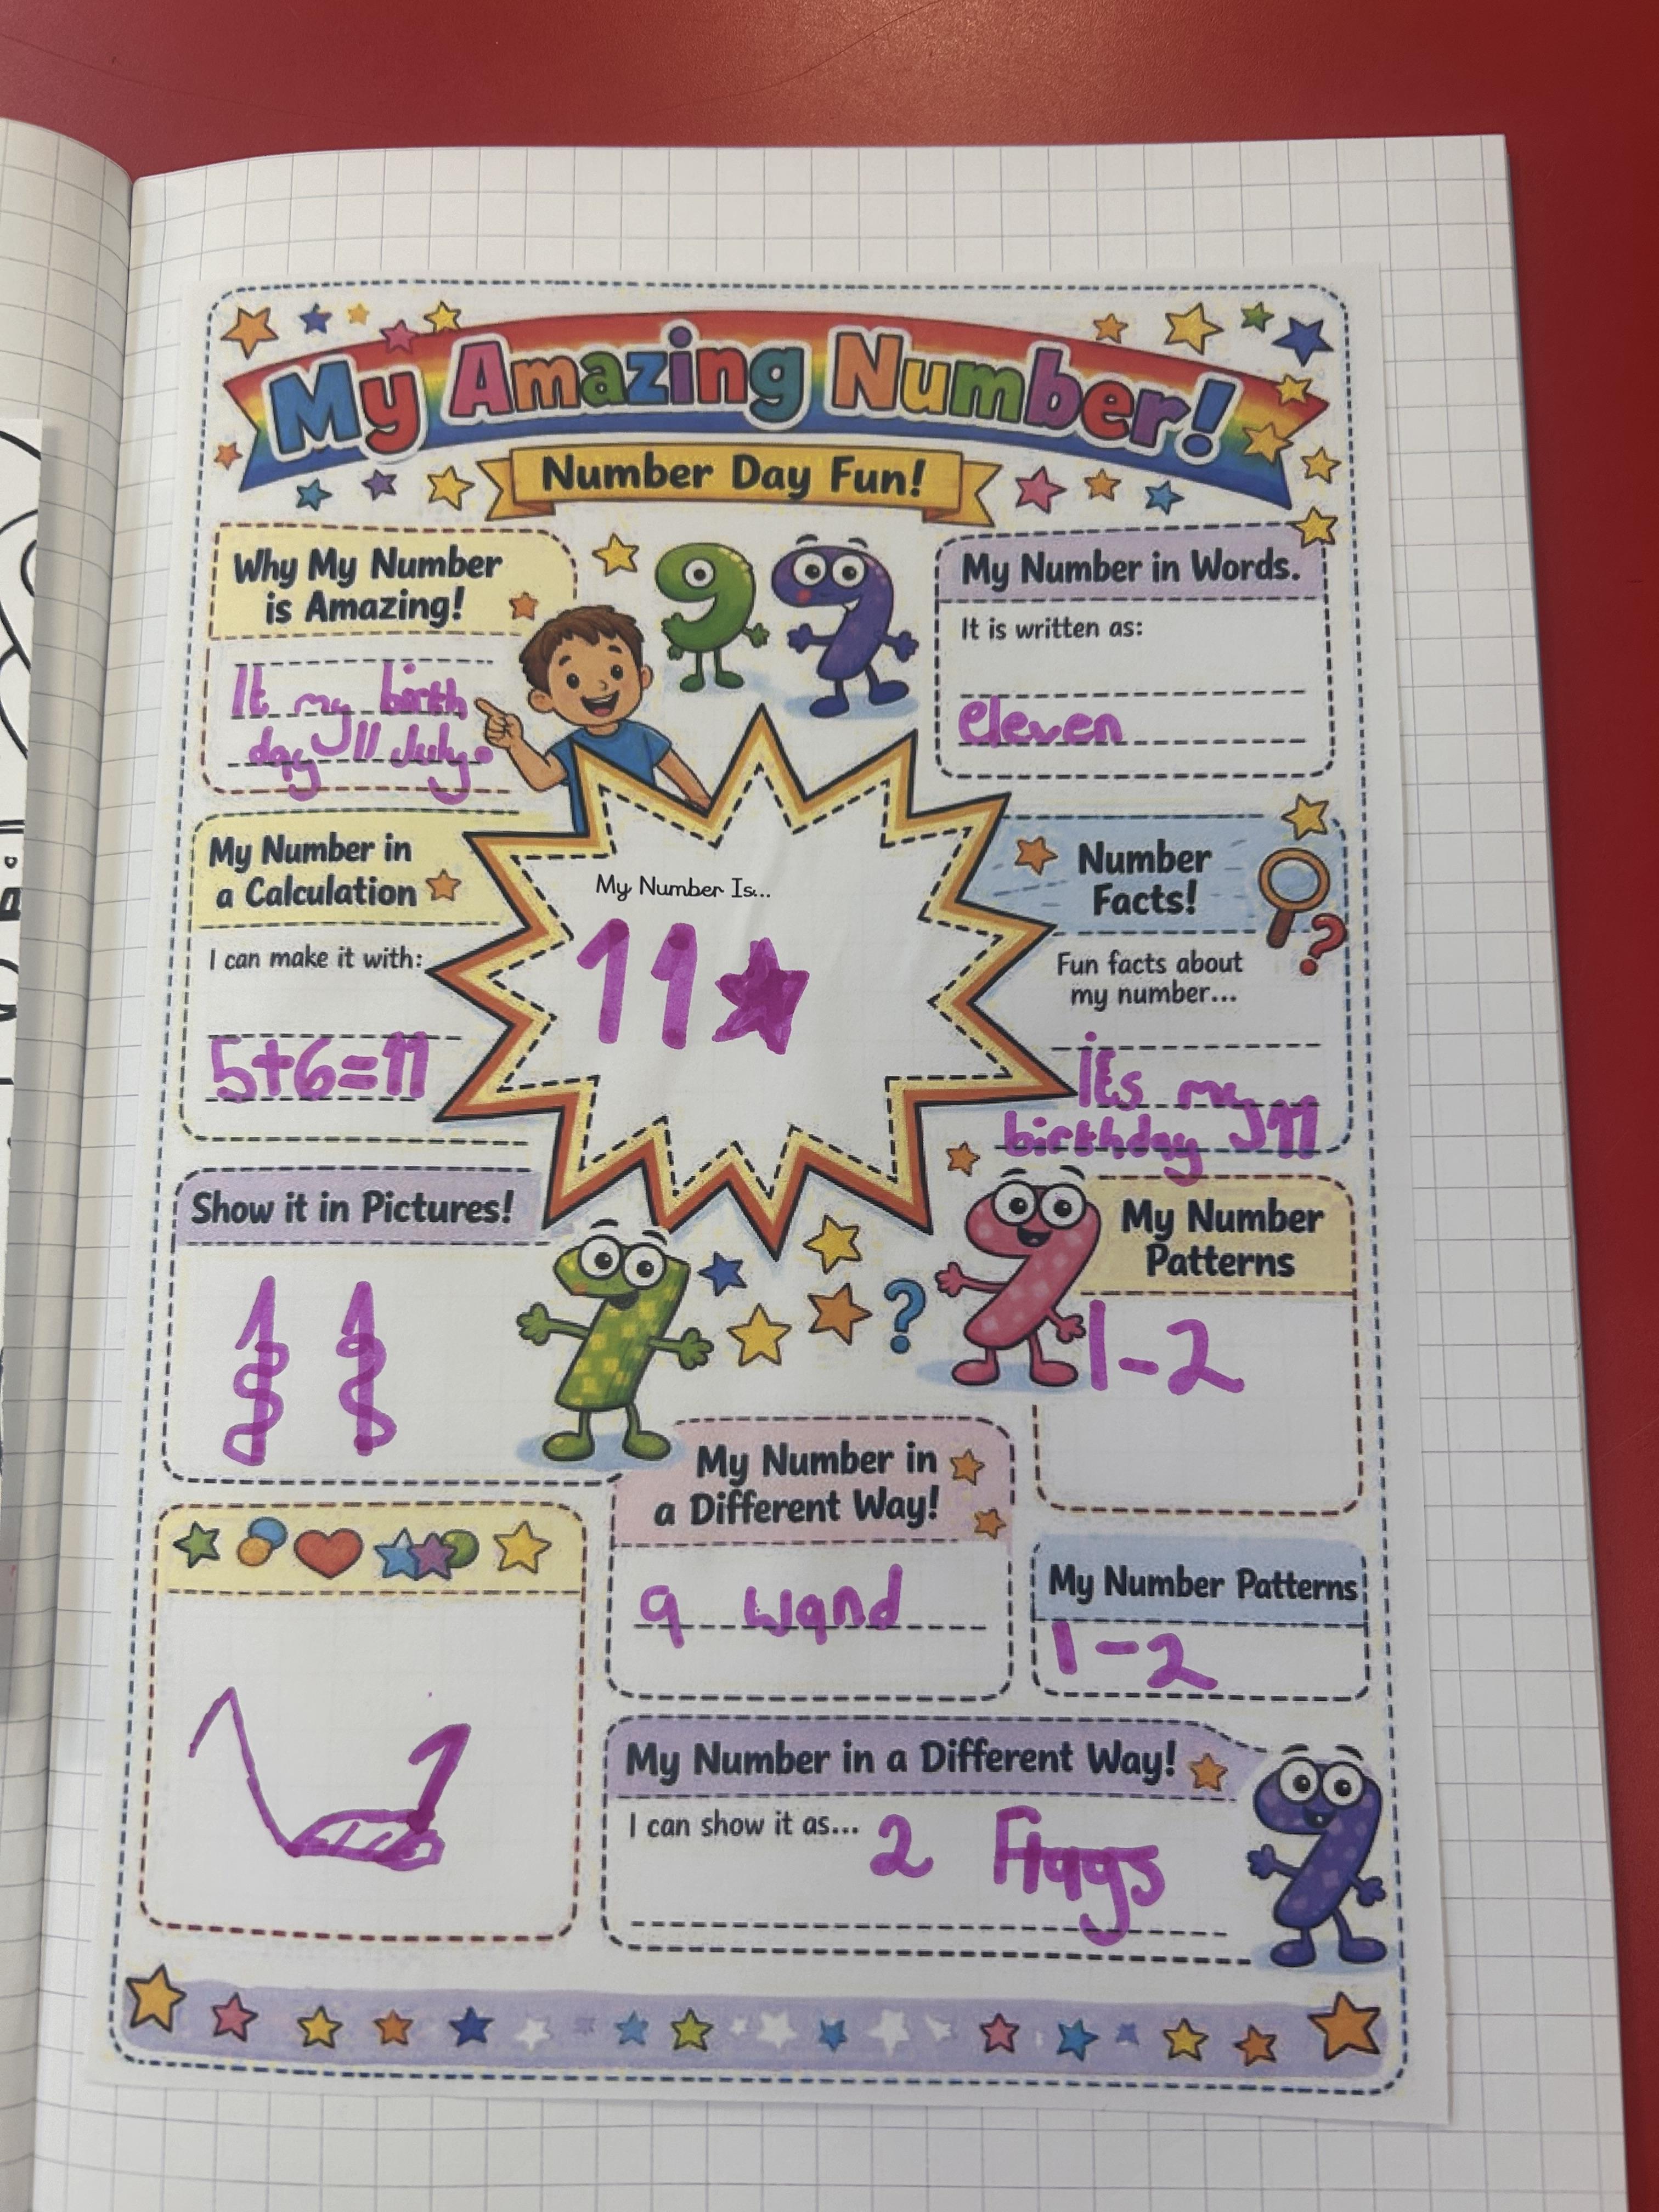 My Amazing Number!
Number Day Fun!
Why My Number
is Amazing!
It my birth
day 11 July.
My Number in Words.
It is written as:
eleven
My Number in
a Calculation
I can make it with:
5+6=11
My Number Is...
11
Number
Facts!
Fun facts about
my number...
its my
birthday 11
Show it in Pictures!
1 1
My Number
Patterns
1-2
My Number in
a Different Way!
a wand
My Number Patterns
1-2
1
My Number in a Different Way!
I can show it as... 2 flags